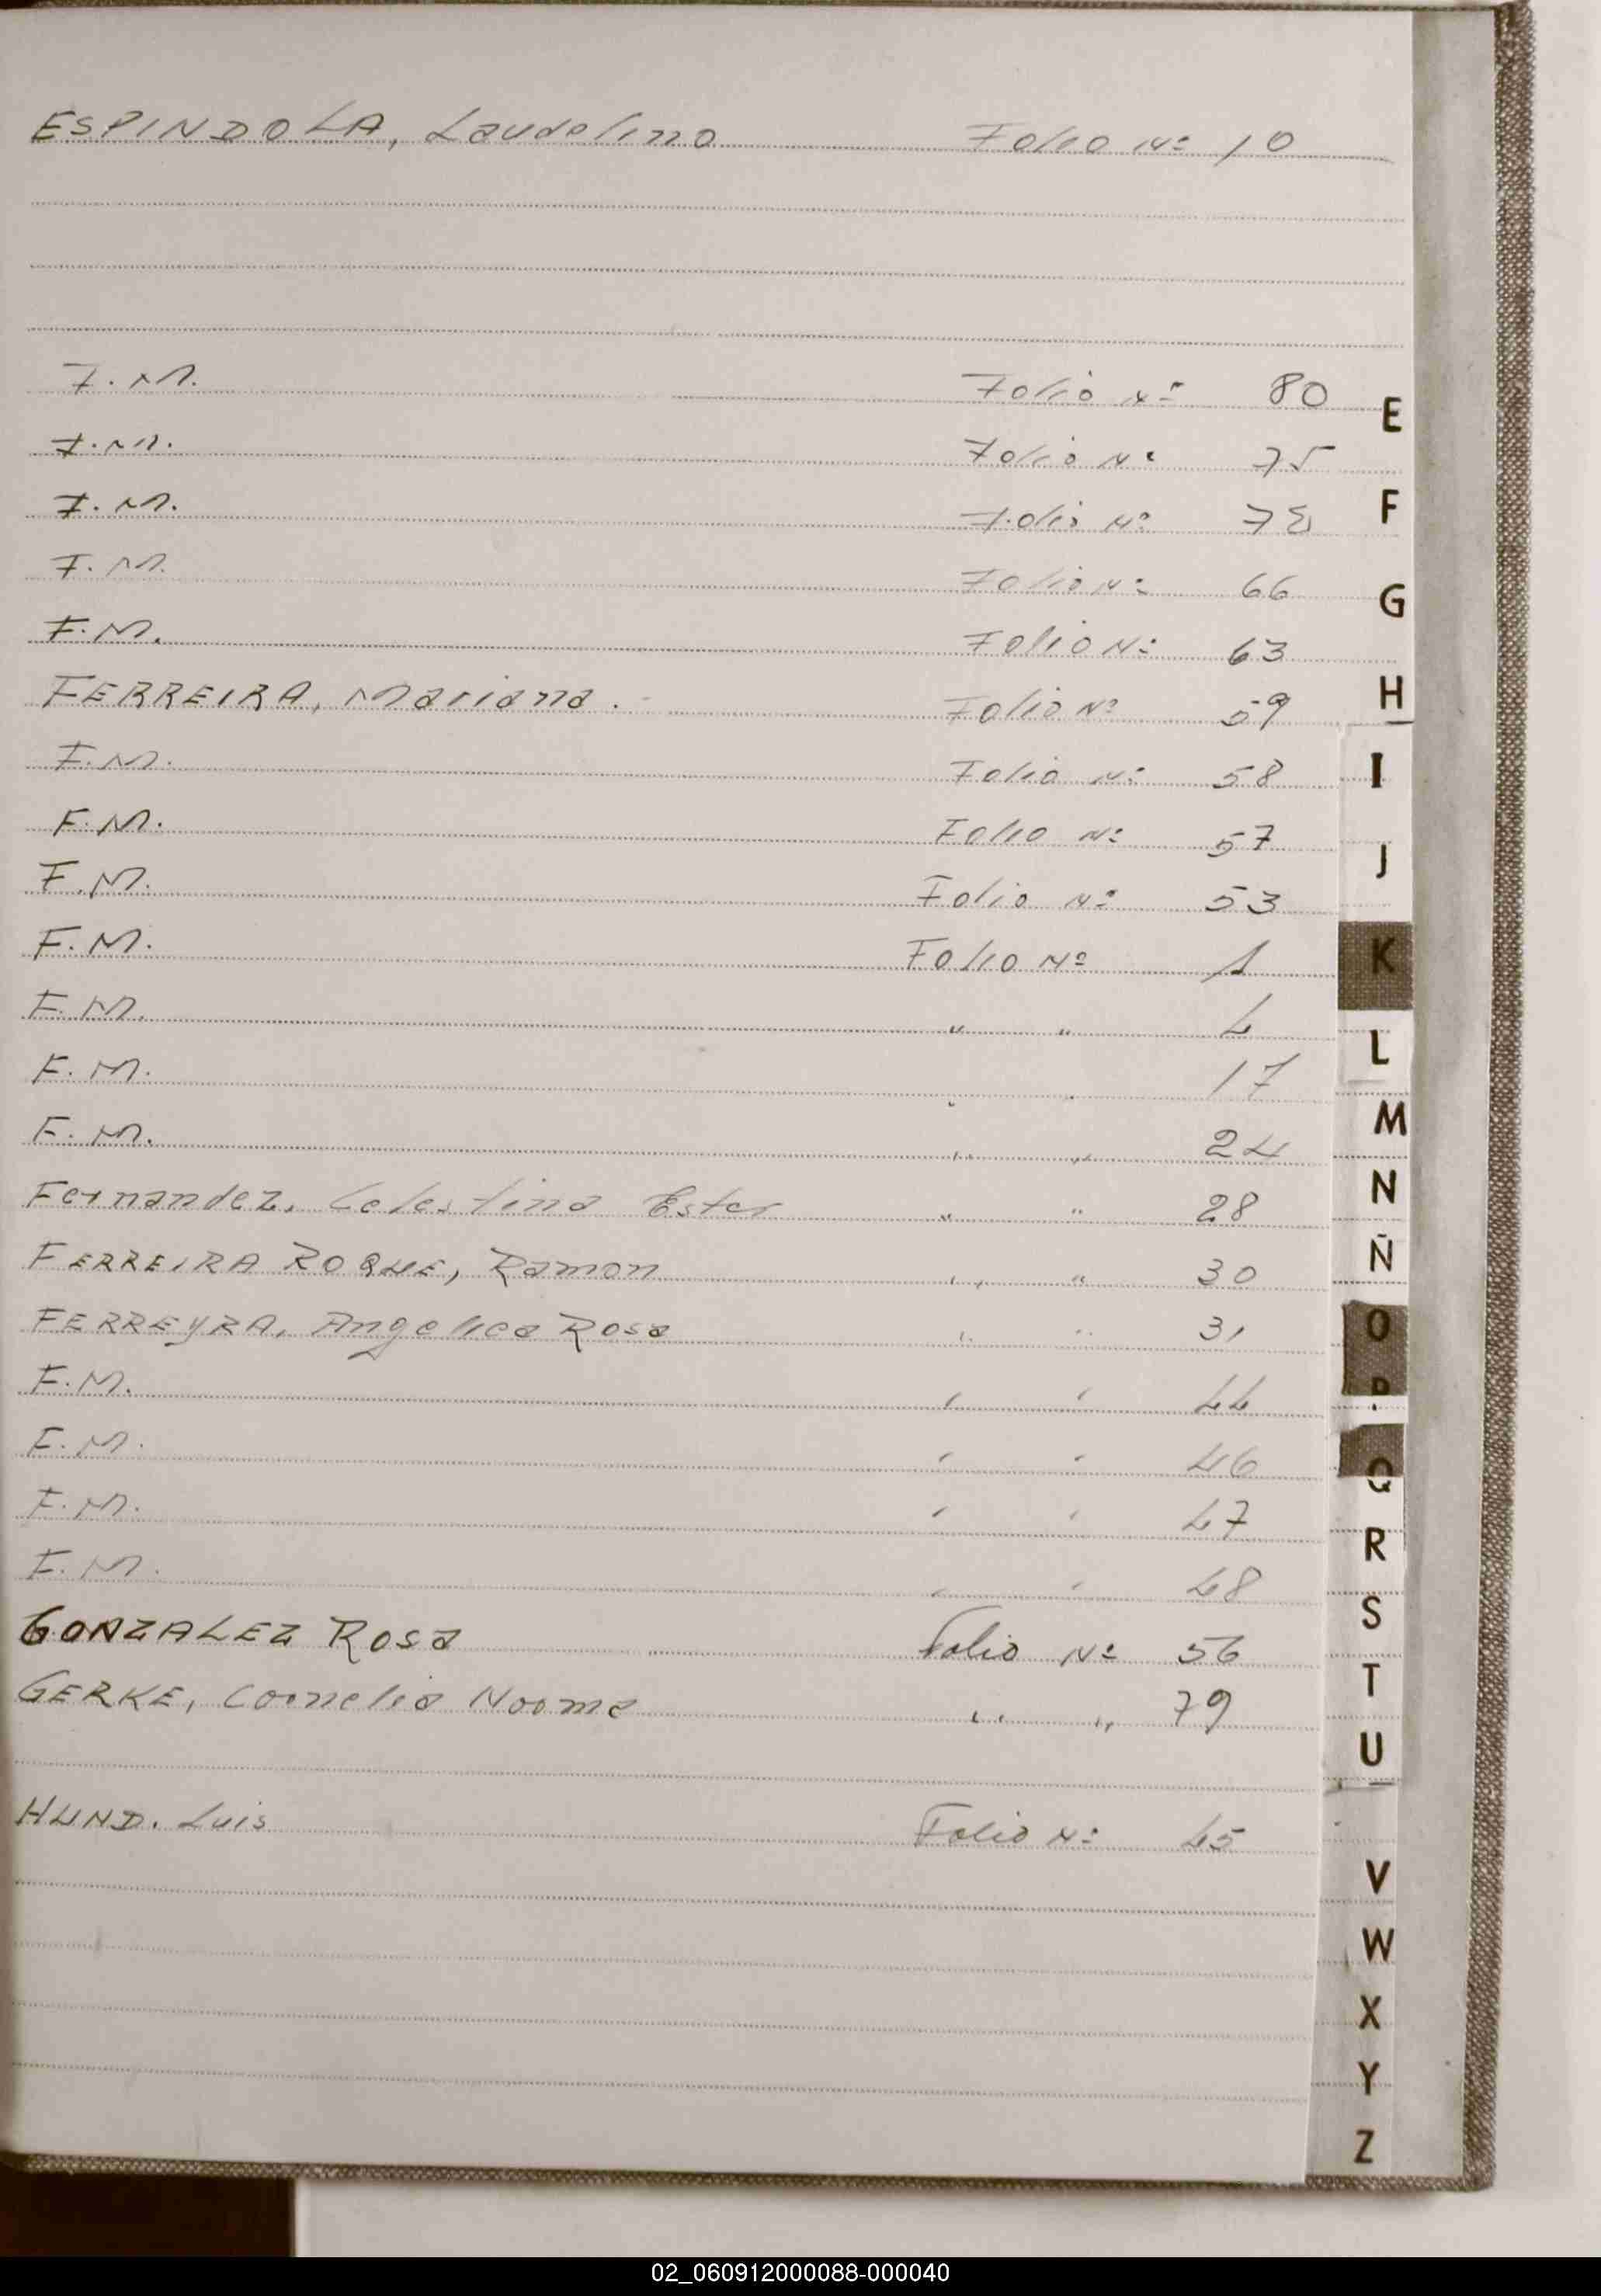 ESPINDOLA, Laudelino Folio Nº 10
F.M. Folio Nº 80
F.M. Folio Nº 75
F.M. Folio Nº 78
F.M. Folio Nº 66
F.M. Folio Nº 63
FERREIRA, Mariana. Folio Nº 59
F.M. Folio Nº 58
F.M. Folio Nº 57
F.M. Folio Nº 53
F.M. Folio Nº 1
F.M. " " 4
F.M. " " 17
F.M. " " 24
Fernandez, Celestina Ester " " 28
FERREIRA ROQUE, Ramon " " 30
FERREYRA, Angelica Rosa " " 31
F.M. " " 44
F.M. " " 46
F.M. " " 47
F.M. " " 48
GONZALEZ Rosa Folio Nº 56
GERKE, Cornelia Norma " " 79
HUND. Luis Folio Nº 45
E
F
G
H
I
J
K
L
M
N
Ñ
O
P
Q
R
S
T
U
V
W
X
Y
Z
02_060912000088-000040